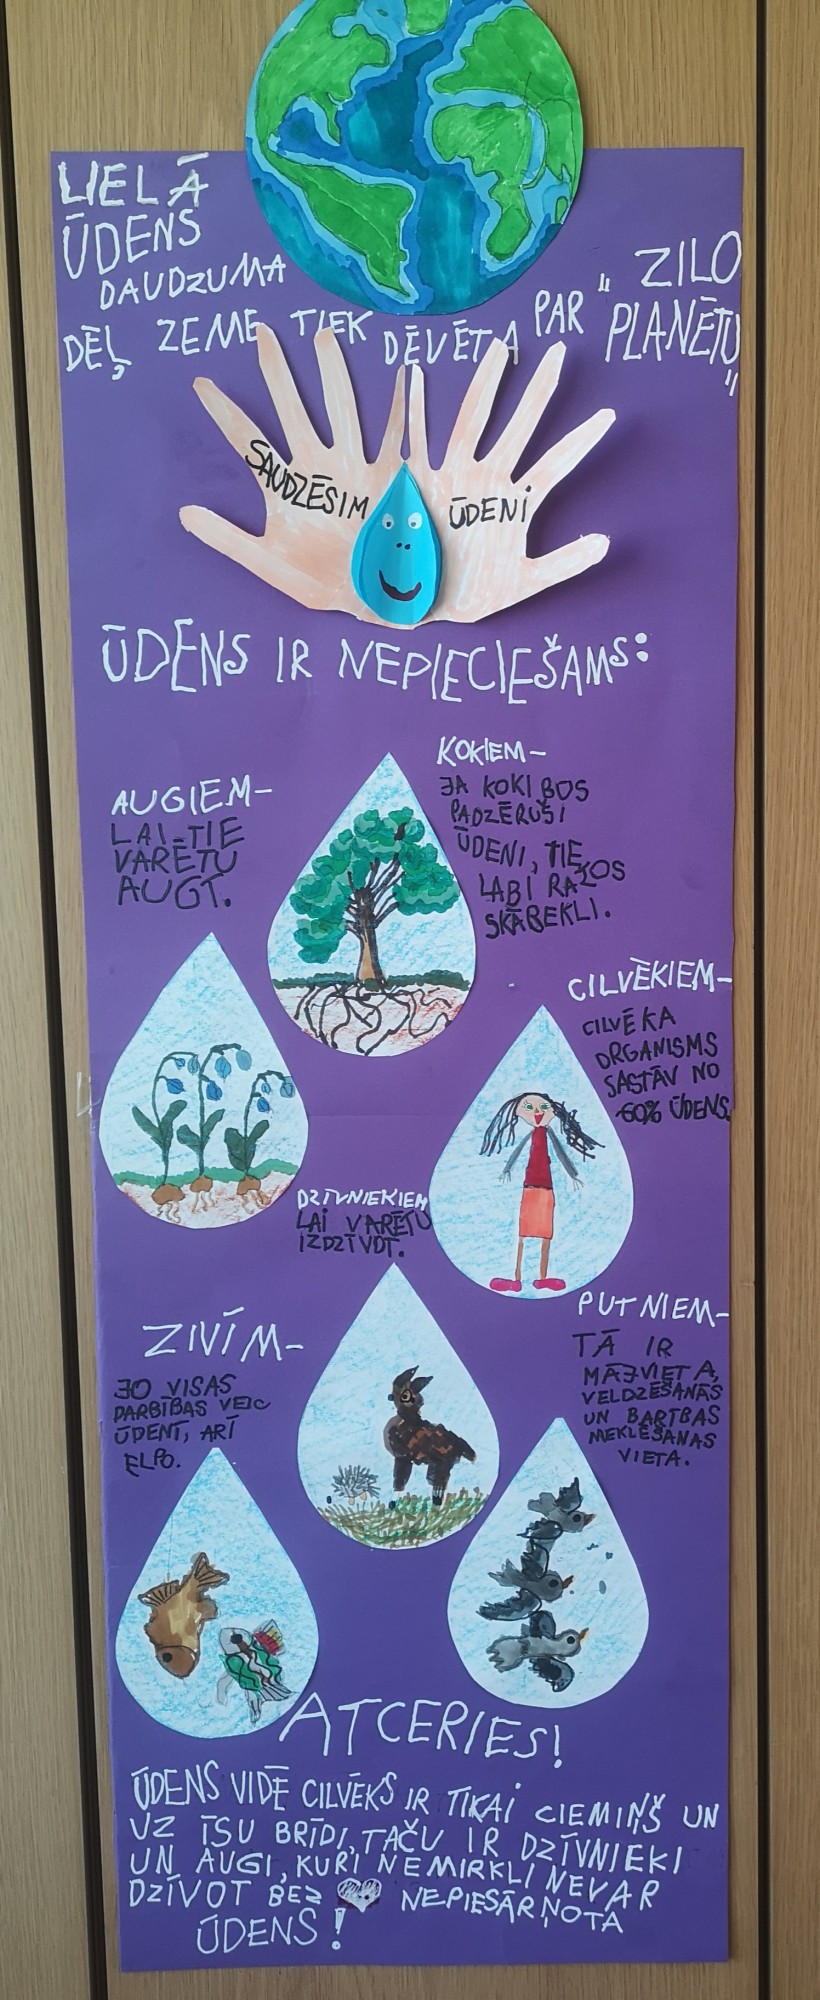 LIELĀ
ŪDENS
DAUDZUMA
DĒĻ ZEME TIEK DĒVĒTA PAR "ZILO
PLANĒTU"
SAUDZĒSIM ŪDENI
ŪDENS IR NEPIECIEŠAMS:
KOKIEM-
JA KOKI BŪS
PADZĒRUŠI
ŪDENI, TIE
LABI RAŽOS
SKĀBEKLI.
AUGIEM-
LAI TIE
VARĒTU
AUGT.
CILVĒKIEM-
CILVĒKA
ORGANISMS
SASTĀV NO
60% ŪDENS.
DZĪVNIEKIEM
LAI VARĒTU
IZDZĪVOT.
PUTNIEM-
TĀ IR
MĀJVIETA,
VELDZĒŠANĀS
UN BARĪBAS
MEKLĒŠANAS
VIETA.
ZIVĪM-
JO VISAS
DARBĪBAS VEIC
ŪDENĪ, ARĪ
ELPO.
ATCERIES!
ŪDENS VIDĒ CILVĒKS IR TIKAI CIEMIŅŠ UN
UZ ĪSU BRĪDI, TAČU IR DZĪVNIEKI
UN AUGI, KURI NEMIRKLI NEVAR
DZĪVOT BEZ NEPIESĀRŅOTA
ŪDENS!